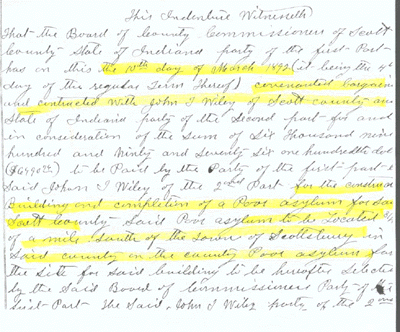 This Indenture Witnesseth
That the Board of County Commissioners of Scott
County State of Indiana party of the first Part
has on this the 10th day of March 1892 (it being the 4
day of the regular Term Thereof) covenanted bargain
and contracted with John I Wiley of Scott county an
State of Indiana party of the Second part for and
in consideration of the Sum of Six Thousand nine
hundred and Ninty and Seventy Six one hundredth dol
to be Paid by the Party of the first part
Said John I Wiley of the 2nd Part for the
Building and completion of a Poor asylum for Sai
Scott County Said Poor asylum to be Located
of a mile South of the Town of Scottsburg in
Said county on the county Poor asylum
the Site for Said building to be hereafter Selected
by the Said Board of Commissioners Party of
first Part The Said John I Wiley party of the 2nd